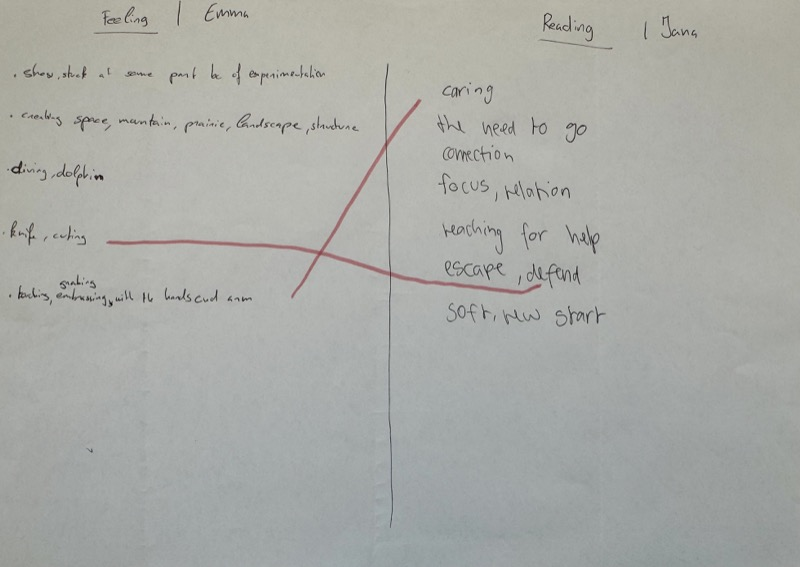 Feeling | Emma
. show, stuck at some part be of experimentation
. creating space, mountain, prairie, landscape, structure
. diving, dolphin
. knife, cuting
grabing
. touching, embrassing, with the hands and arm
Reading | Jana
caring
the need to go
connection
focus, relation
reaching for help
escape, defend
soft, new start